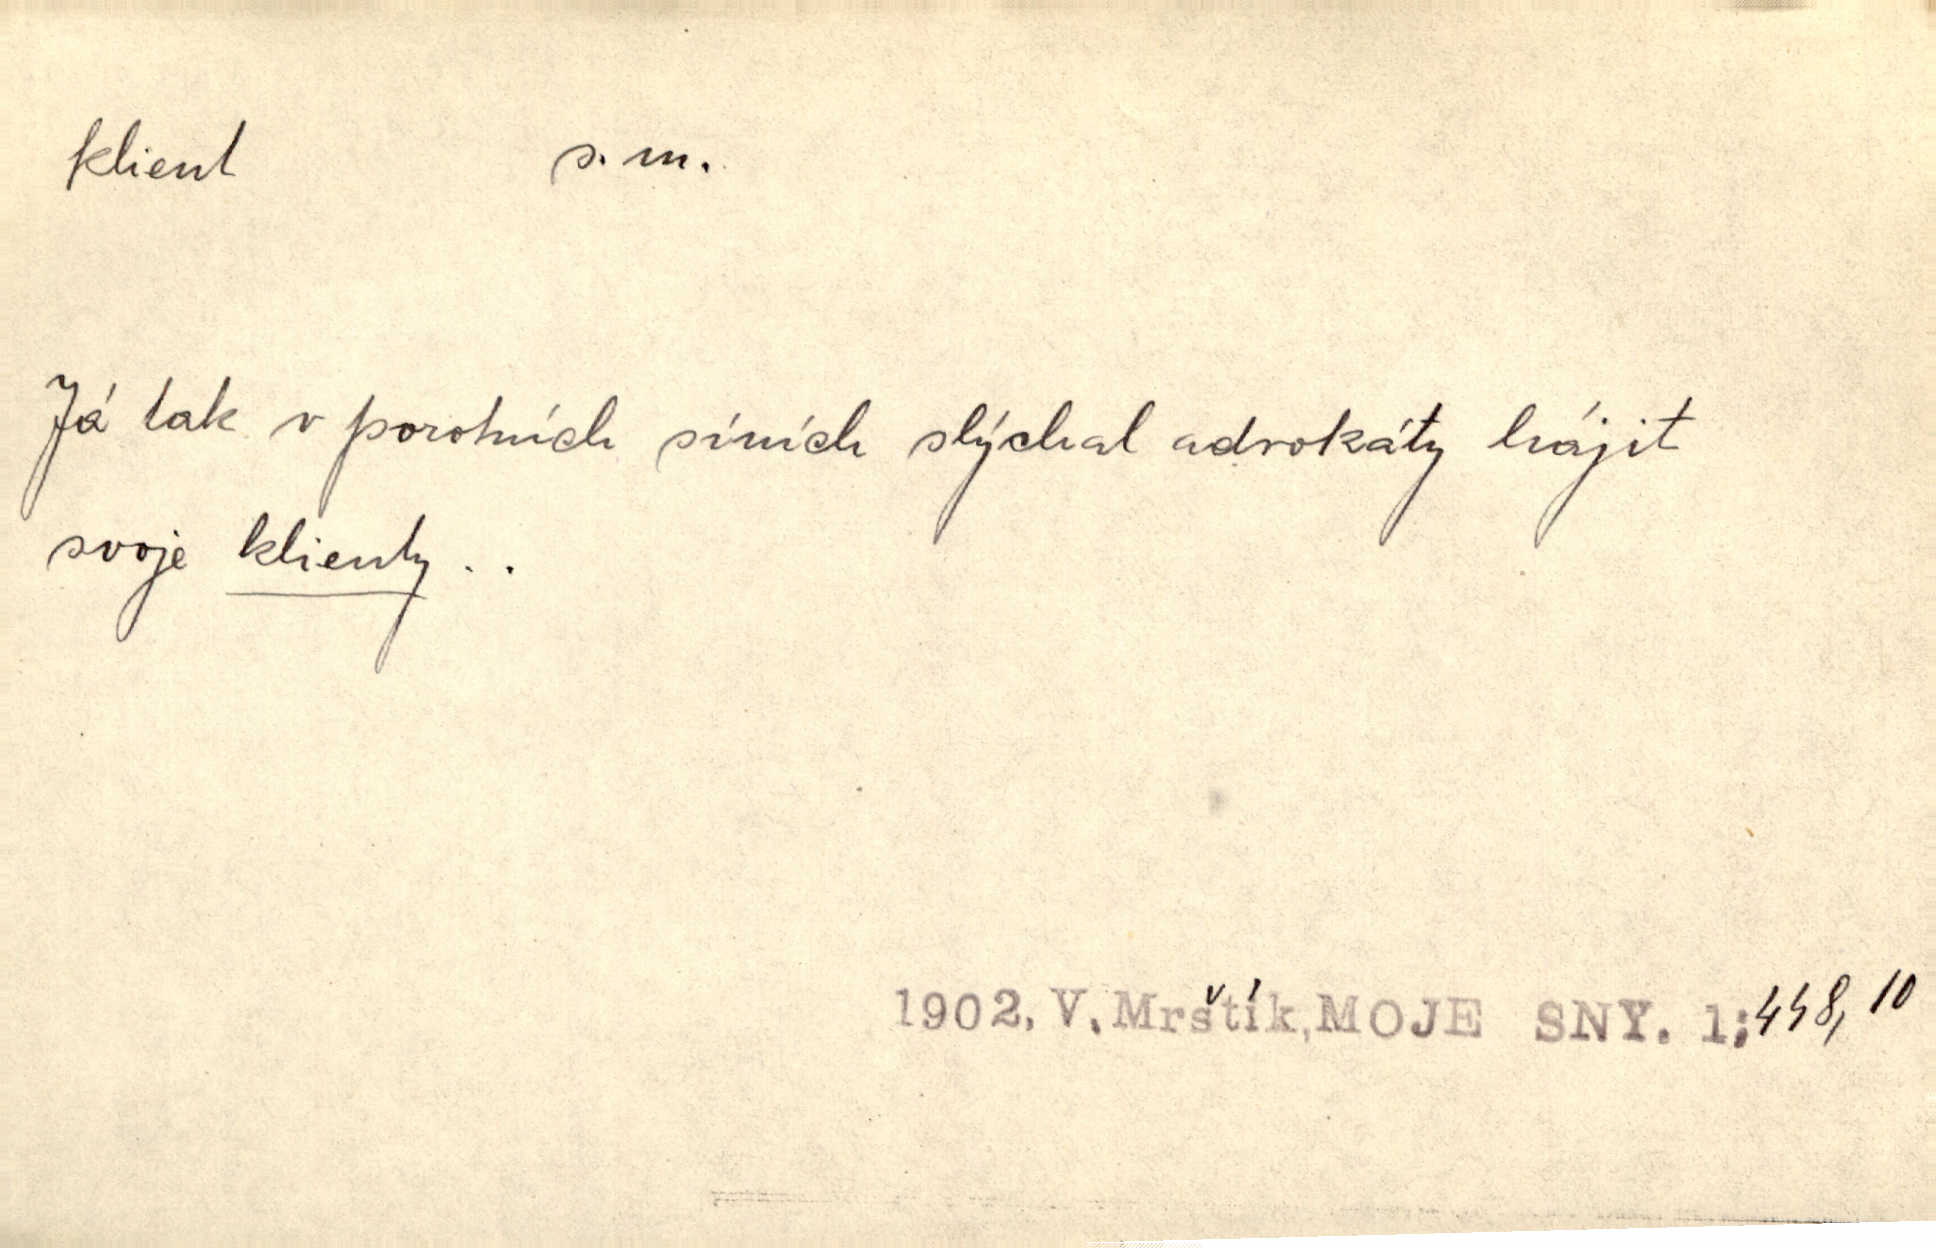 klient s. m.
Já tak v porotních síních slýchal advokáty hájit
svoje klienty . .
1902, V. Mrštík, MOJE SNY. 1; 448, 10